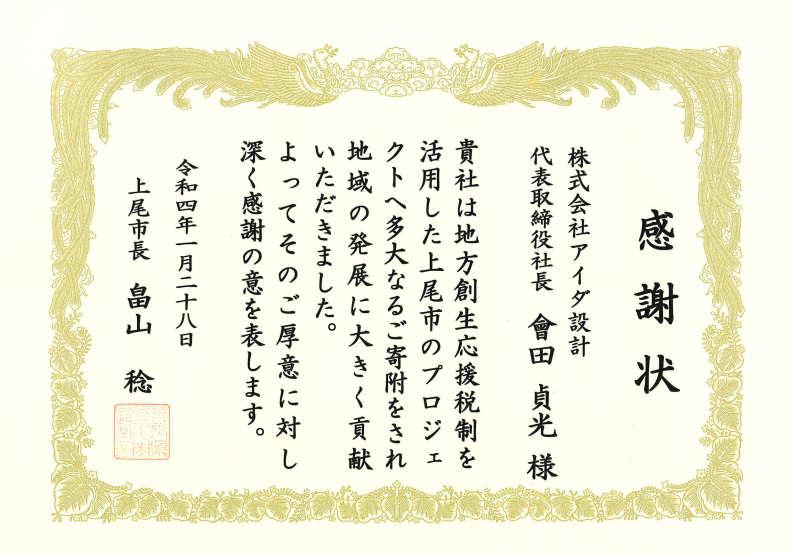 感謝状
株式会社アイダ設計
代表取締役社長 會田 貞光 様
貴社は地方創生応援税制を
活用した上尾市のプロジェ
クトへ多大なるご寄附をされ
地域の発展に大きく貢献
いただきました。
よってそのご厚意に対し
深く感謝の意を表します。
令和四年一月二十八日
上尾市長 畠山 稔